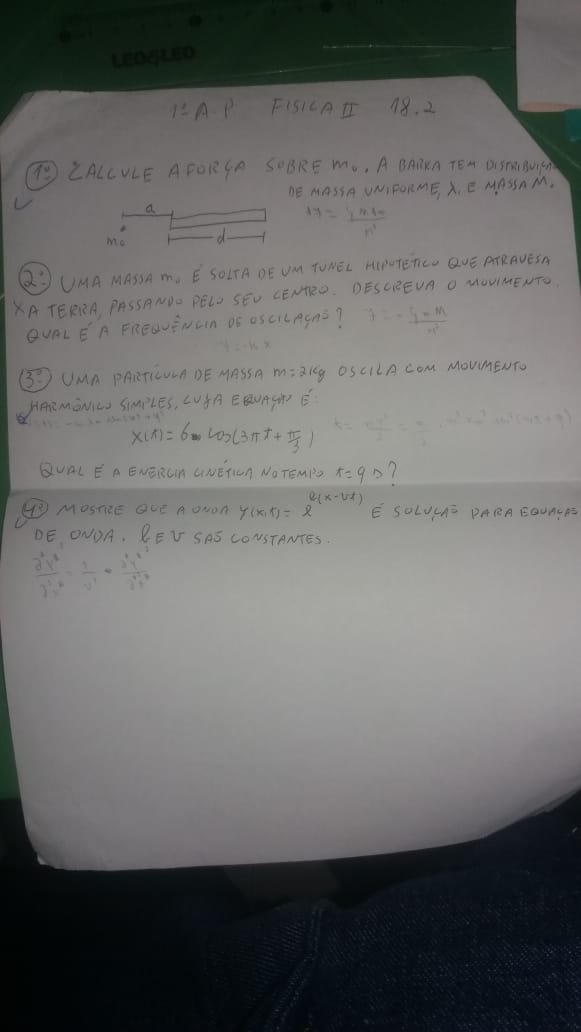 LEO&LEO
1ª A.P FISICA II 18.2
1º CALCULE A FORÇA SOBRE m₀. A BARRA TEM DISTRIBUIÇÃO
DE MASSA UNIFORME, λ, E MASSA M.
a
m₀
d
2º UMA MASSA m₀ É SOLTA DE UM TUNEL HIPOTÉTICO QUE ATRAVESA
A TERRA, PASSANDO PELO SEU CENTRO. DESCREVA O MOVIMENTO.
QUAL É A FREQUÊNCIA DE OSCILAÇÃO?
3º UMA PARTÍCULA DE MASSA m=2kg OSCILA COM MOVIMENTO
HARMÔNICO SIMPLES, CUJA EQUAÇÃO É:
X(t)=6m cos(3πt+π/3)
QUAL É A ENERGIA CINÉTICA NO TEMPO t=9s?
4º MOSTRE QUE A ONDA y(x,t)= e^b(x-vt) É SOLUÇÃO PARA EQUAÇÃO
DE ONDA. b E V SÃO CONSTANTES.